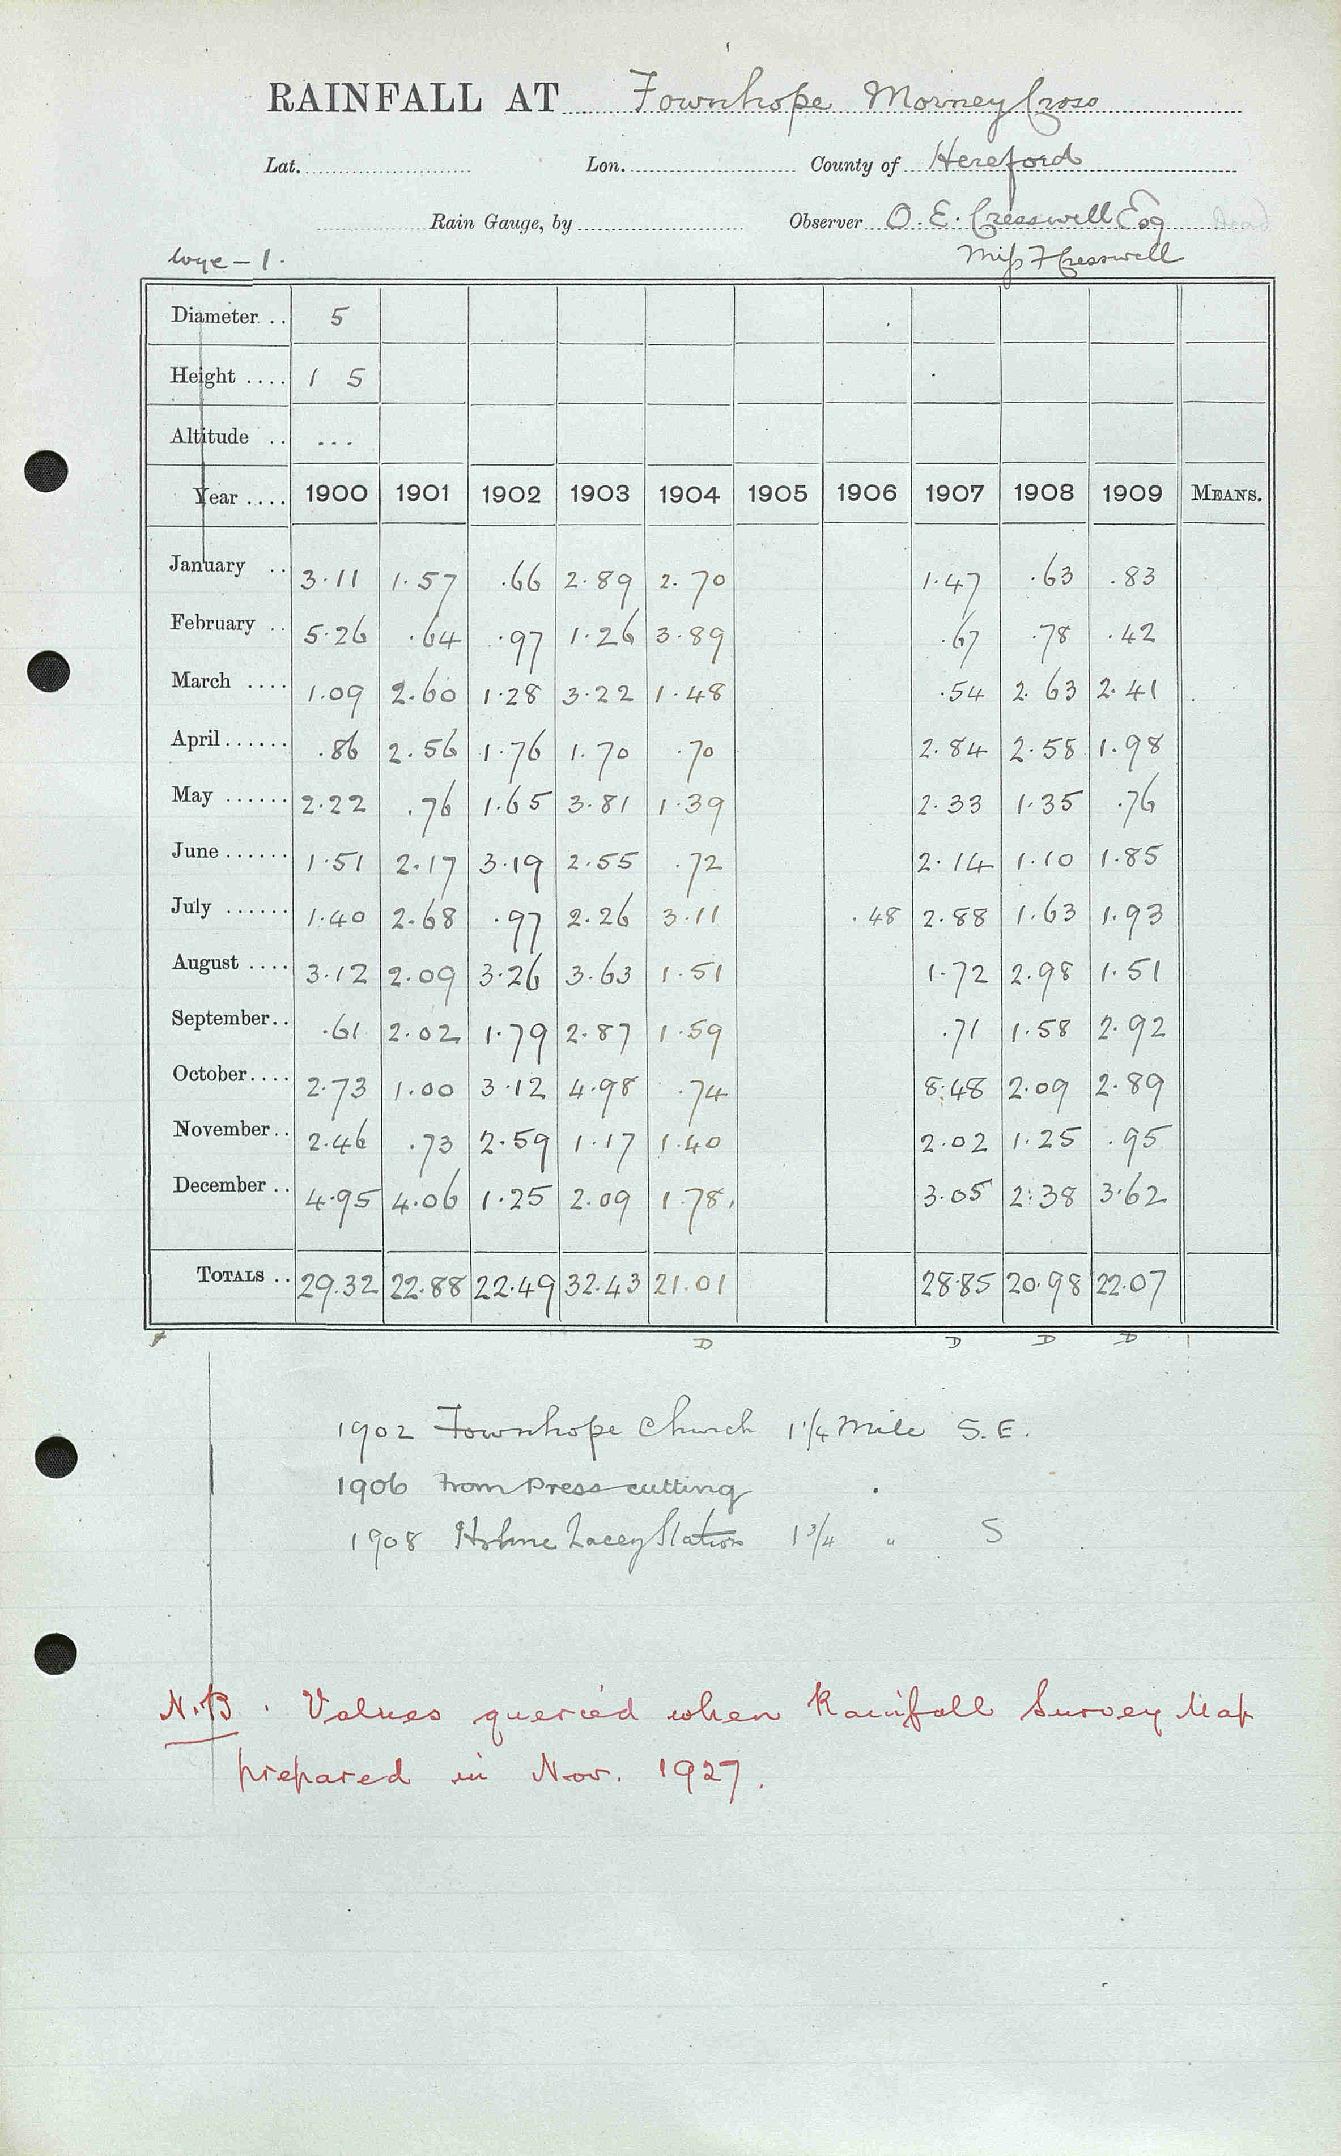 RAINFALL AT Fownhope Morney Cross
Lat. Lon. County of Hereford
Rain Gauge, by Observer O. E. Cresswell Esq Dead
Wye - 1. Miss F Cresswell
Diameter .. 5
Height .... 1 5
Altitude .. ...
Year .... 1900 1901 1902 1903 1904 1905 1906 1907 1908 1909 MEANS.
January .. 3.11 1.57 .66 2.89 2.70 1.47 .63 .83
February .. 5.26 .64 .97 1.26 3.89 .67 .78 .42
March .... 1.09 2.60 1.28 3.22 1.48 .54 2.63 2.41
April...... .86 2.56 1.76 1.70 .70 2.84 2.58 1.98
May ...... 2.22 .76 1.65 3.81 1.39 2.33 1.35 .76
June...... 1.51 2.17 3.19 2.55 .72 2.14 1.10 1.85
July ...... 1.40 2.68 .97 2.26 3.11 .48 2.88 1.63 1.93
August .... 3.12 2.09 3.26 3.63 1.51 1.72 2.98 1.51
September.. .61 2.02 1.79 2.87 1.59 .71 1.58 2.92
October.... 2.73 1.00 3.12 4.98 .74 8.48 2.09 2.89
November.. 2.46 .73 2.59 1.17 1.40 2.02 1.25 .95
December .. 4.95 4.06 1.25 2.09 1.78 3.05 2.38 3.62
TOTALS .. 29.32 22.88 22.49 32.43 21.01 28.85 20.98 22.07
D D D D
1902 Fownhope Church 1 1/4 Mile S.E.
1906 From Press cutting
1908 Holme Lacey Station 1 3/4 " S
N.B. Values queried when Rainfall Survey Map
prepared in Nov. 1927.